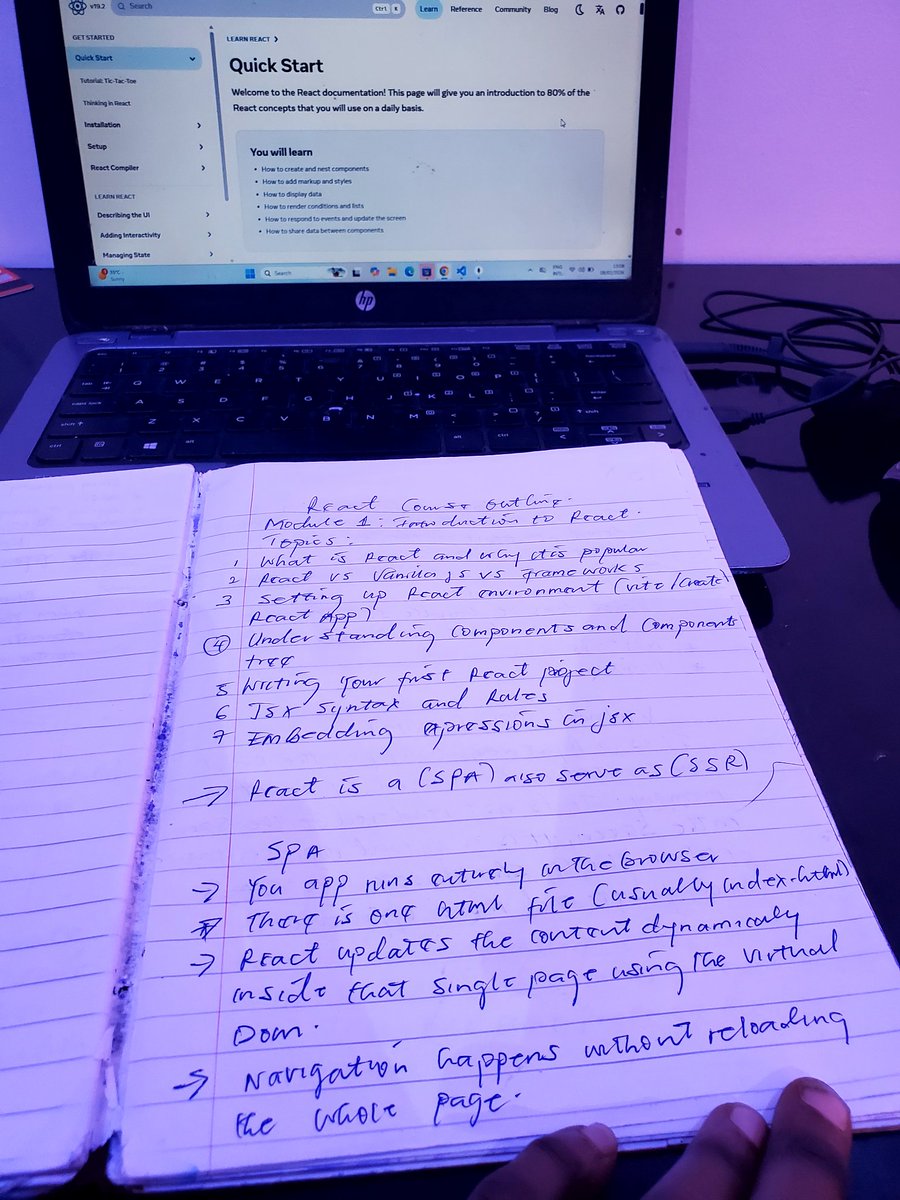 v19.2
Search
Ctrl K
Learn
Reference
Community
Blog
GET STARTED
Quick Start
Tutorial: Tic-Tac-Toe
Thinking in React
Installation
Setup
React Compiler
LEARN REACT
Describing the UI
Adding Interactivity
Managing State
LEARN REACT
Quick Start
Welcome to the React documentation! This page will give you an introduction to 80% of the
React concepts that you will use on a daily basis.
You will learn
• How to create and nest components
• How to add markup and styles
• How to display data
• How to render conditions and lists
• How to respond to events and update the screen
• How to share data between components
Sunny
Search
ENG
hp
React Course Outline.
Module 1: Introduction to React.
Topics:
1 What is React and why it is popular
2 React vs Vanilla js vs frameworks
3 Setting up React environment (vite/create
React App)
4 Understanding components and components
tree
5 Writing your first React project
6 Jsx Syntax and Rules
7 Embedding expressions in jsx
→ React is a (SPA) also serve as (SSR)
SPA
→ You app runs entirely in the browser
→ There is one html file (usually index.html)
→ React updates the content dynamically
inside that single page using the virtual
Dom.
→ Navigation happens without reloading
the whole page.